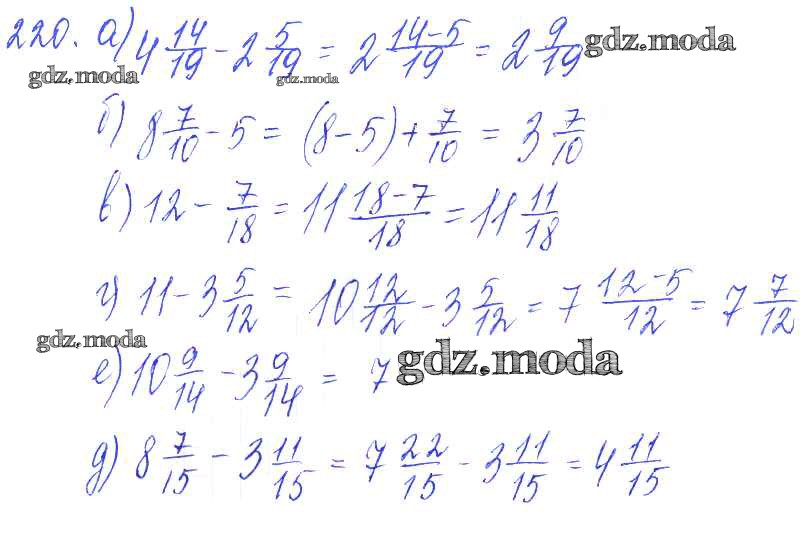 220. а) 4 14/19 - 2 5/19 = 2 (14-5)/19 = 2 9/19 gdz.moda
gdz.moda gdz.moda
б) 8 7/10 - 5 = (8-5) + 7/10 = 3 7/10
в) 12 - 7/18 = 11 (18-7)/18 = 11 11/18
г) 11 - 3 5/12 = 10 12/12 - 3 5/12 = 7 (12-5)/12 = 7 7/12
gdz.moda
е) 10 9/14 - 3 9/14 = 7 gdz.moda
д) 8 7/15 - 3 11/15 = 7 22/15 - 3 11/15 = 4 11/15